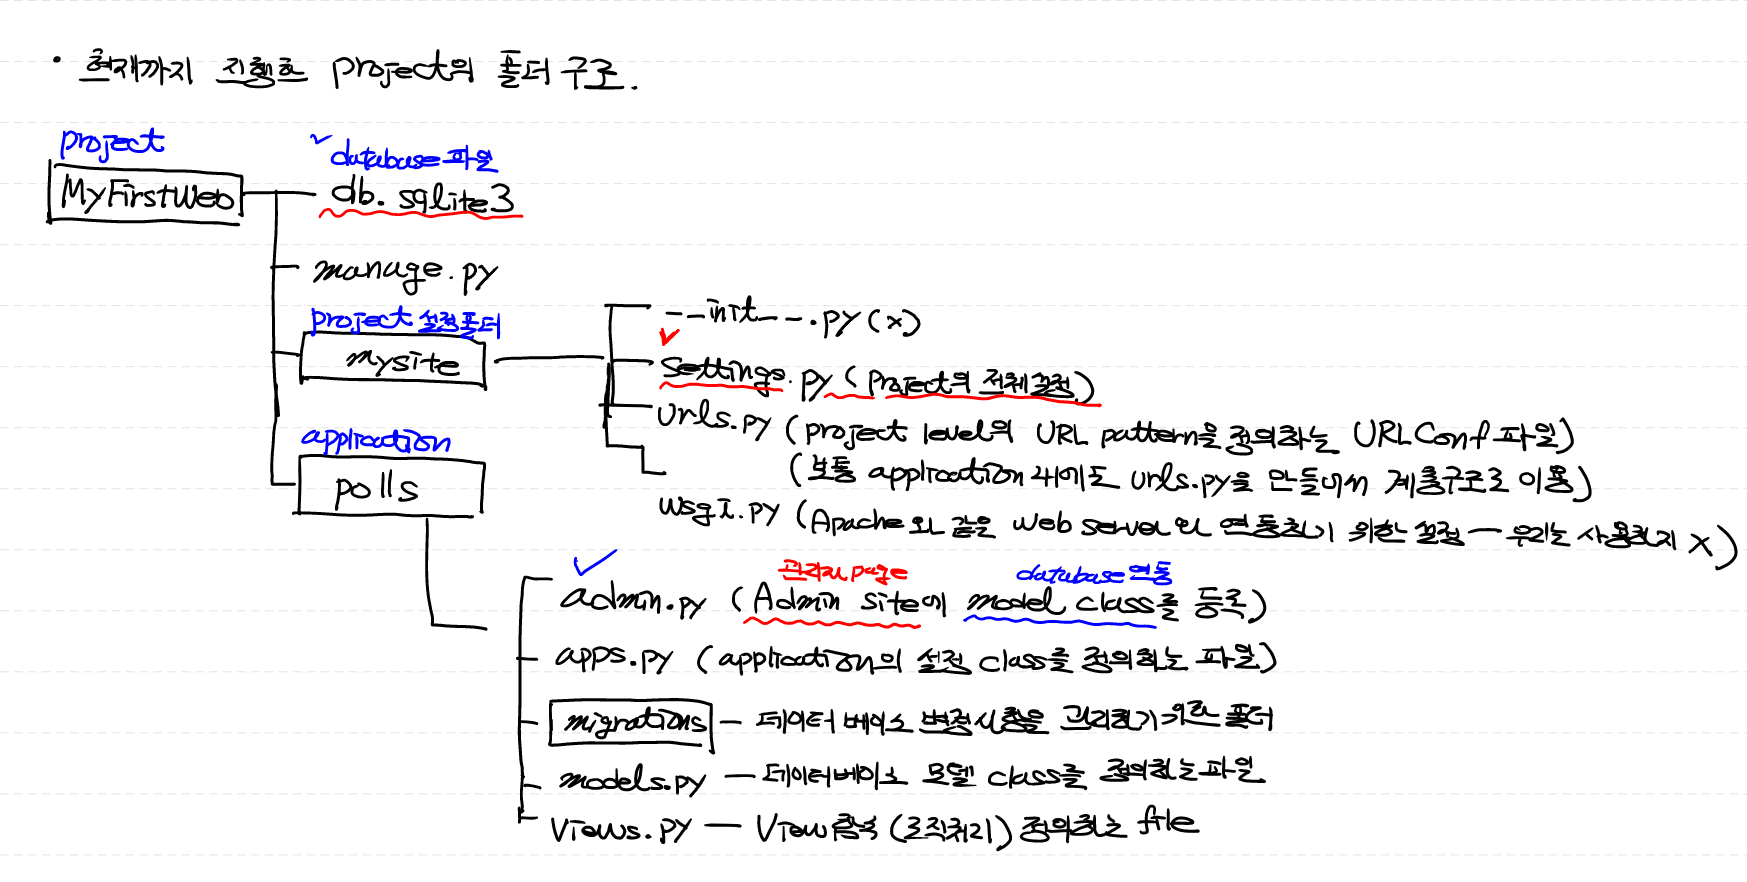 • 현재까지 진행한 project의 폴더구조.
project
MyFirstWeb
✓ database 파일
db.sqlite3
manage.py
project 설정폴더
mysite
__init__.py (x)
✓
settings.py (project의 전체설정)
urls.py (project level의 URL pattern을 정의하는 URLConf 파일)
(보통 application 내에도 urls.py을 만들어서 계층구조로 이용)
wsgi.py (Apache와 같은 web server와 연동하기 위한 설정 - 우리는 사용하지 X)
application
polls
✓ 관리자 page database 연동
admin.py (Admin site에 model class를 등록)
apps.py (application의 설정 class를 정의하는 파일)
migrations - 데이터베이스 변경사항을 관리하기 위한 폴더
models.py - 데이터베이스 모델 class를 정의하는 파일
views.py - View함수 (로직처리) 정의하는 file